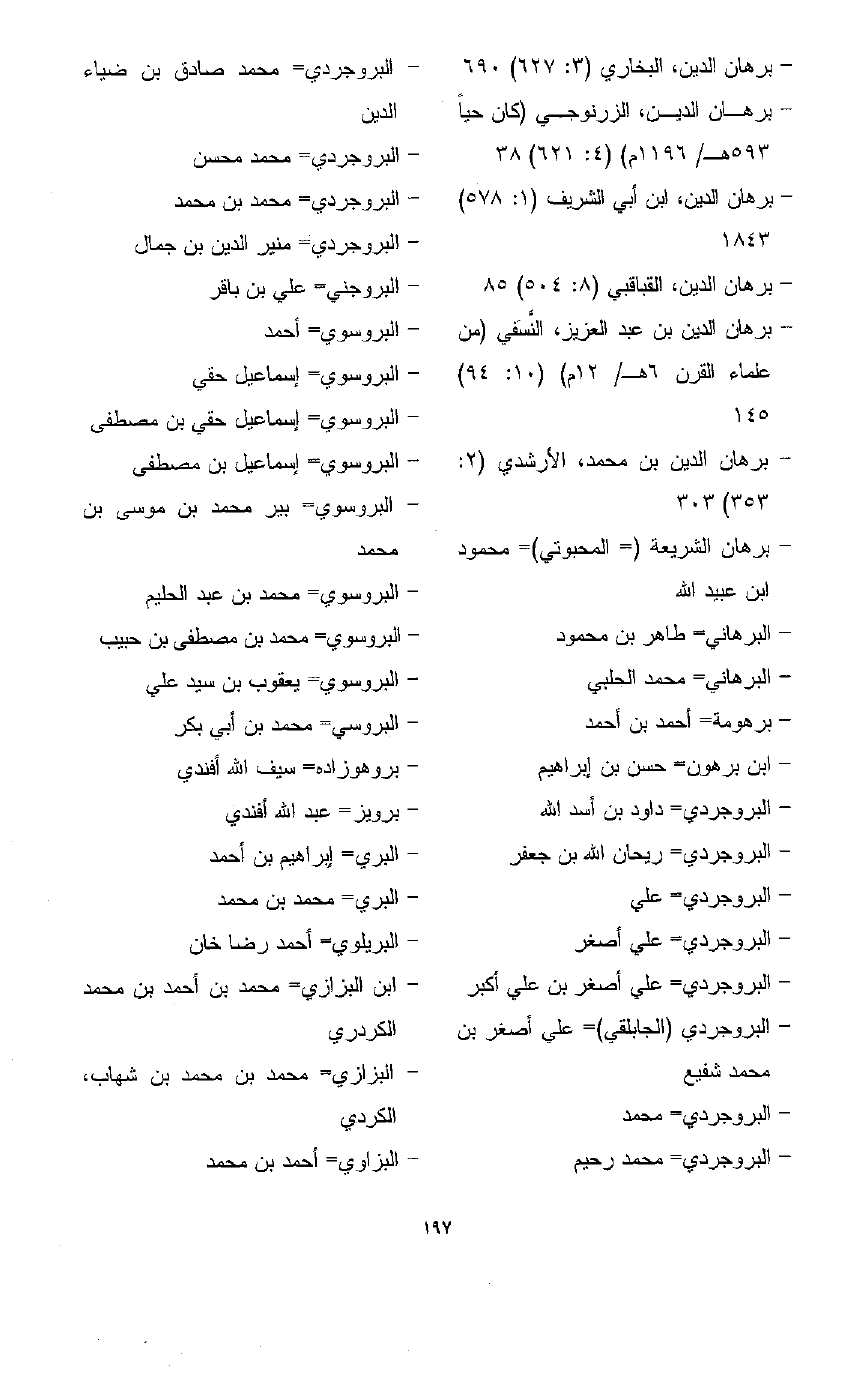 – برهان الدين، البخاري (٣: ٦٢٧) ٦٩٠
– برهـــان الديـــن، الزرنوجـــي (كان حياً
٥٩٣هـــ/ ١١٩٦م) (٤: ٦٢١) ٣٨
– برهان الدين، ابن أبي الشريف (١: ٥٧٨)
١٨٤٣
– برهان الدين، القباقبي (٨: ٥٠٤) ٨٥
– برهان الدين بن عبد العزيز، النَّسَفي (من
علماء القرن ٦هـــ/ ١٢م) (١٠: ٩٤)
١٤٥
– برهان الدين بن محمد، الأرشدي (٢:
٣٥٣) ٣٠٣
– برهان الشريعة (= المحبوتي)= محمود
ابن عبيد الله
– البرهاني= طاهر بن محمود
– البرهاني= محمد الحلبي
– برهومة= أحمد بن أحمد
– ابن برهون= حسن بن إبراهيم
– البروجردي= داود بن أسد الله
– البروجردي= ريحان الله بن جعفر
– البروجردي= علي
– البروجردي= علي أصغر
– البروجردي= علي أصغر بن علي أكبر
– البروجردي (الجابلقي)= علي أصغر بن
محمد شفيع
– البروجردي= محمد
– البروجردي= محمد رحيم
– البروجردي= محمد صادق بن ضياء
الدين
– البروجردي= محمد محسن
– البروجردي= محمد بن محمد
– البروجردي= منير الدين بن جمال
– البروجني= علي بن باقر
– البروسوي= أحمد
– البروسوي= إسماعيل حقي
– البروسوي= إسماعيل حقي بن مصطفى
– البروسوي= إسماعيل بن مصطفى
– البروسوي= بير محمد بن موسى بن
محمد
– البروسوي= محمد بن عبد الحليم
– البروسوي= محمد بن مصطفى بن حبيب
– البروسوي= يعقوب بن سيد علي
– البروسي= محمد بن أبي بكر
– بروهوزاده= سيف الله أفندي
– برويز= عبد الله أفندي
– البري= إبراهيم بن أحمد
– البري= محمد بن محمد
– البريلوي= أحمد رضا خان
– ابن البزازي= محمد بن أحمد بن محمد
الكردري
– البزازي= محمد بن محمد بن شهاب،
الكردي
– البزاوي= أحمد بن محمد
١٩٧